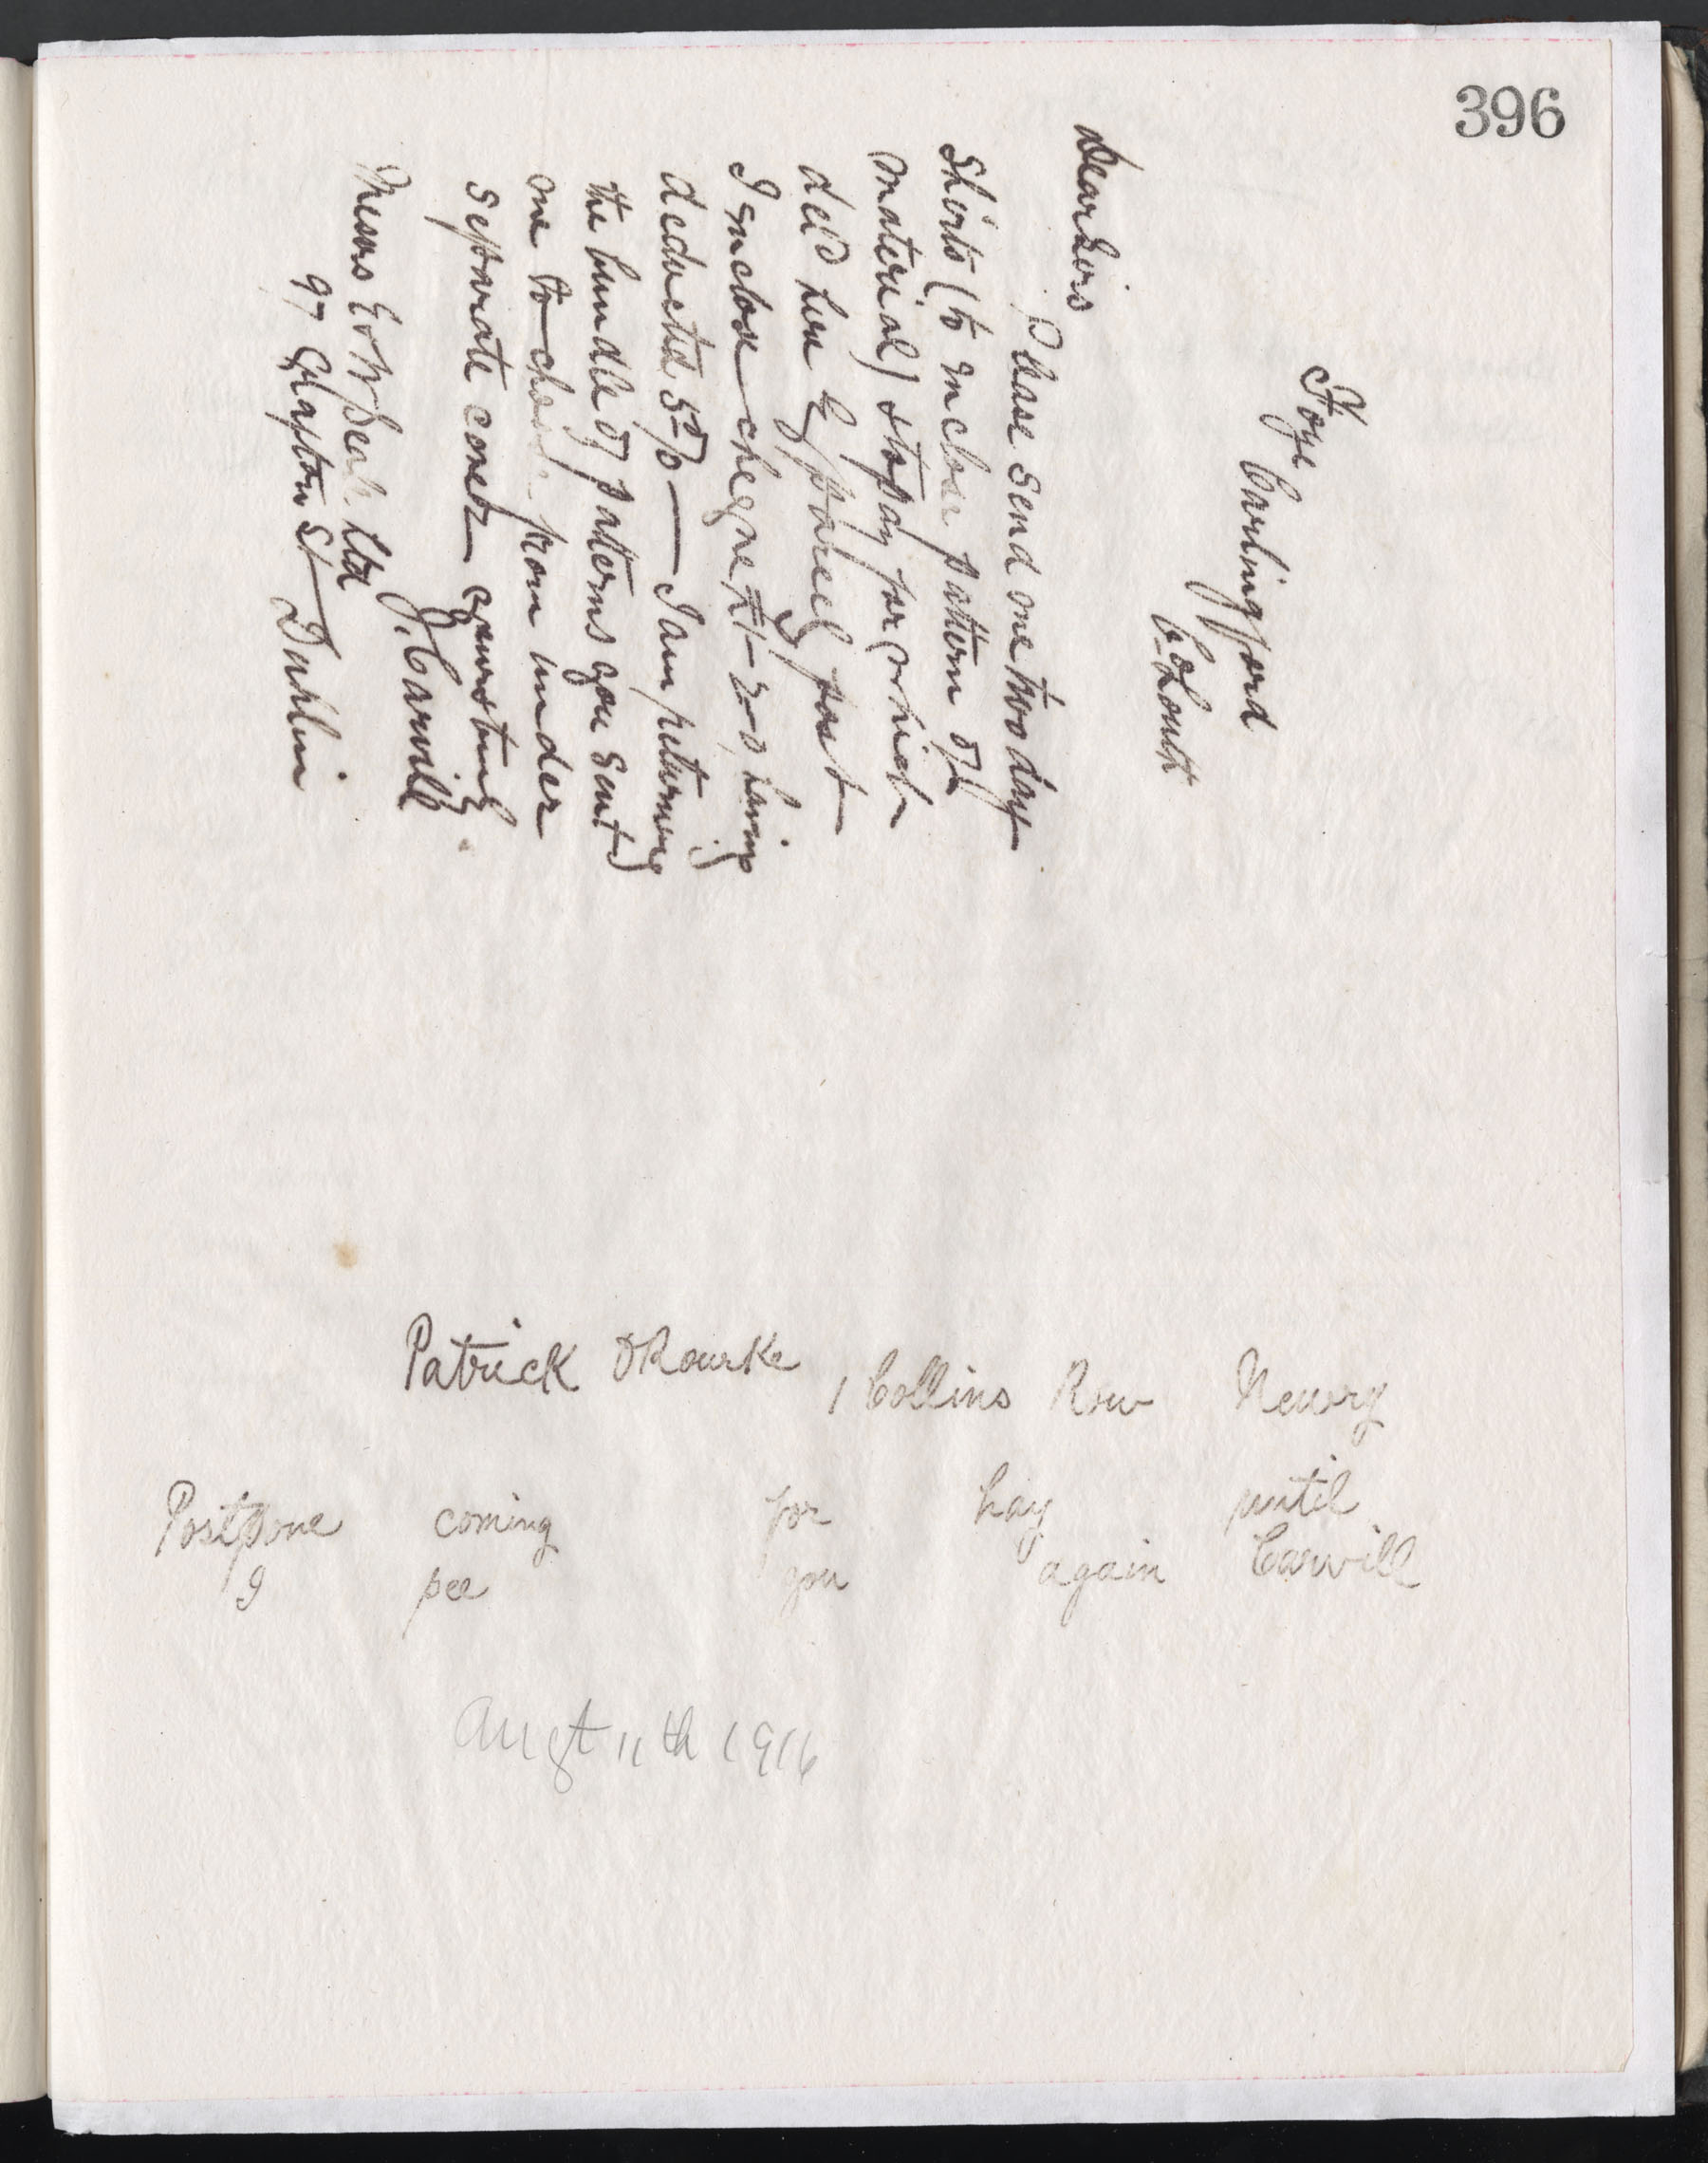 396
Foye
Carlingford
Co Louth
Dear Sirs
Please send me two day
Shirts (to inclose pattern of
material) & to pay for which
deld here by parcel post
I enclose cheque £1-2-0 having
deducted 5% — I am returning
the bundle of patterns you sent
me to choose from under
separate cover yours truly
J. Carvill
Messrs Seale Ltd
97 Grafton St Dublin
Patrick O'Rourke 1 Collins Row Newry
Postpone coming for hay until
I see you again Carvill
Augt 11th 1916